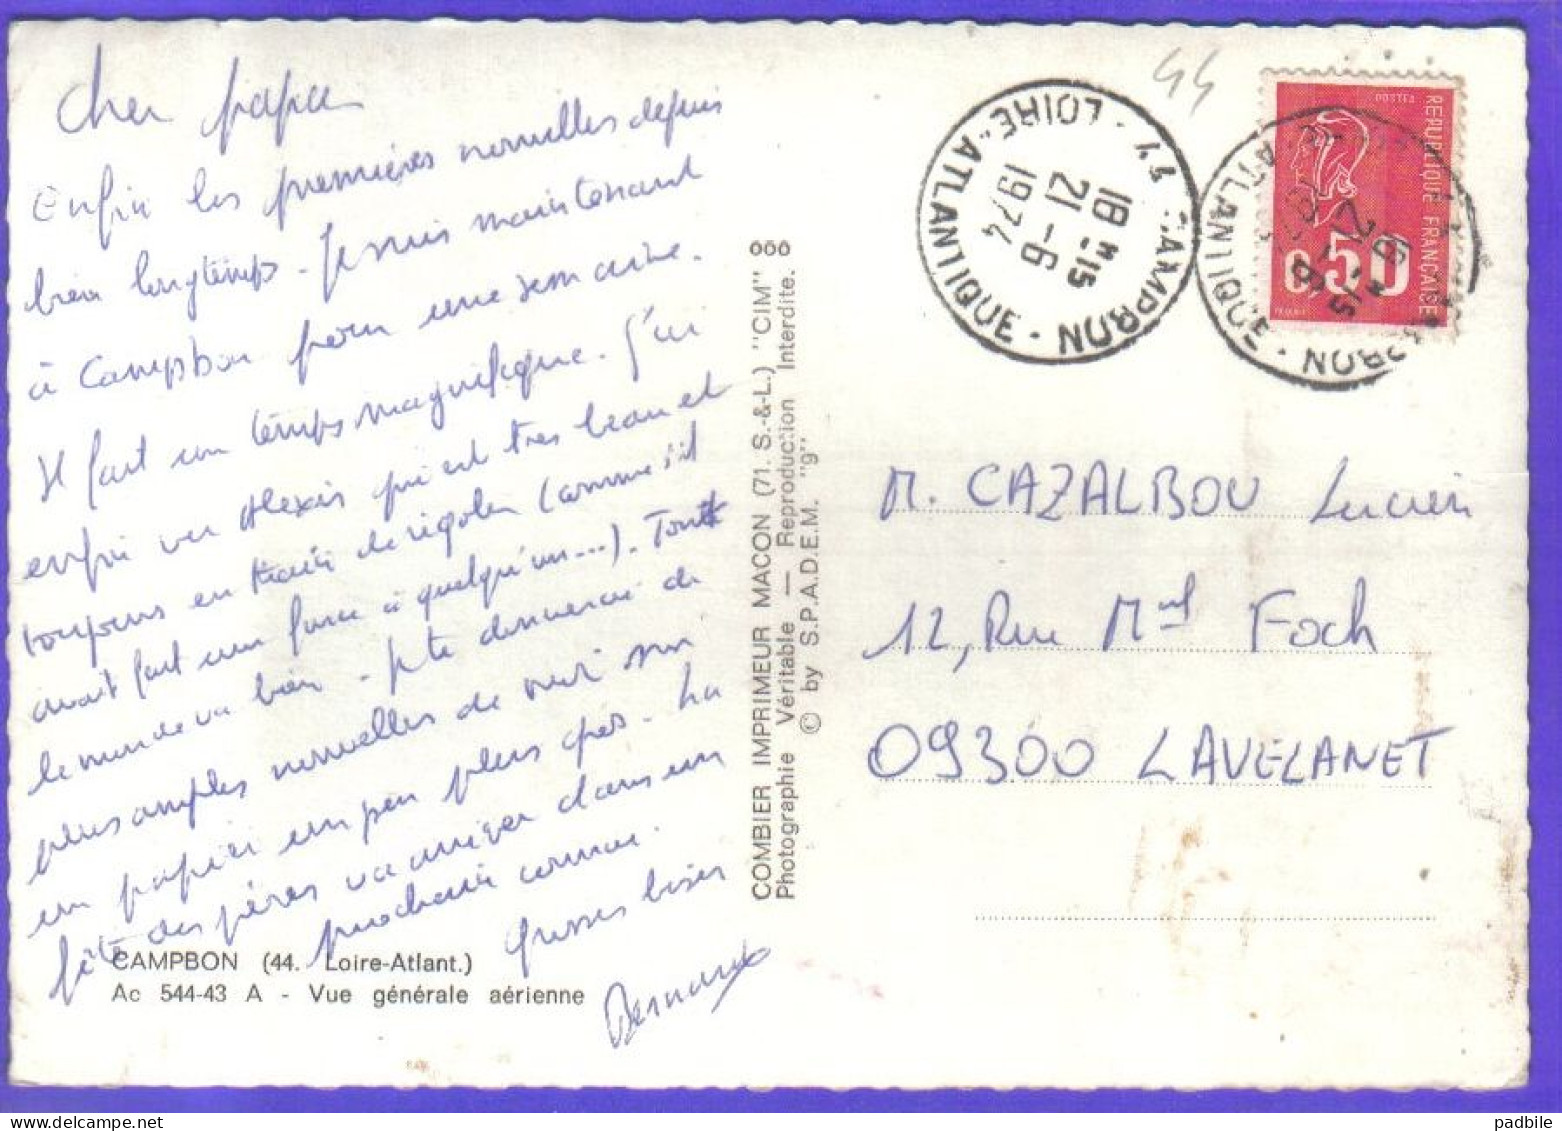 Cher papa
Enfin les premières nouvelles depuis
bien longtemps. Je suis maintenant
à Campbon pour une semaine.
Il fait un temps magnifique. J'ai
enfin vu Alexis qui est très beau et
toujours en train de rigoler (comme s'il
avait fait une farce à quelqu'un...). Tout
le monde va bien. Je te donnerai de
plus amples nouvelles de vive voix sur
un papier un peu plus gros. La
fête des pères va arriver dans un
prochain
Grosses bises
Bernard
CAMPBON (44. Loire-Atlant.)
Ac 544-43 A - Vue générale aérienne
COMBIER IMPRIMEUR MACON (71. S.-&-L.) "CIM"
Photographie Véritable — Reproduction Interdite.
© by S.P.A.D.E.M. "9"
44
44 CAMPBON
18 H 15
21-6
1974
LOIRE-ATLANTIQUE
REPUBLIQUE FRANÇAISE
0,50
M. CAZALBOU Lucien
12, Rue Mal Foch
09300 LAVELANET
padbile